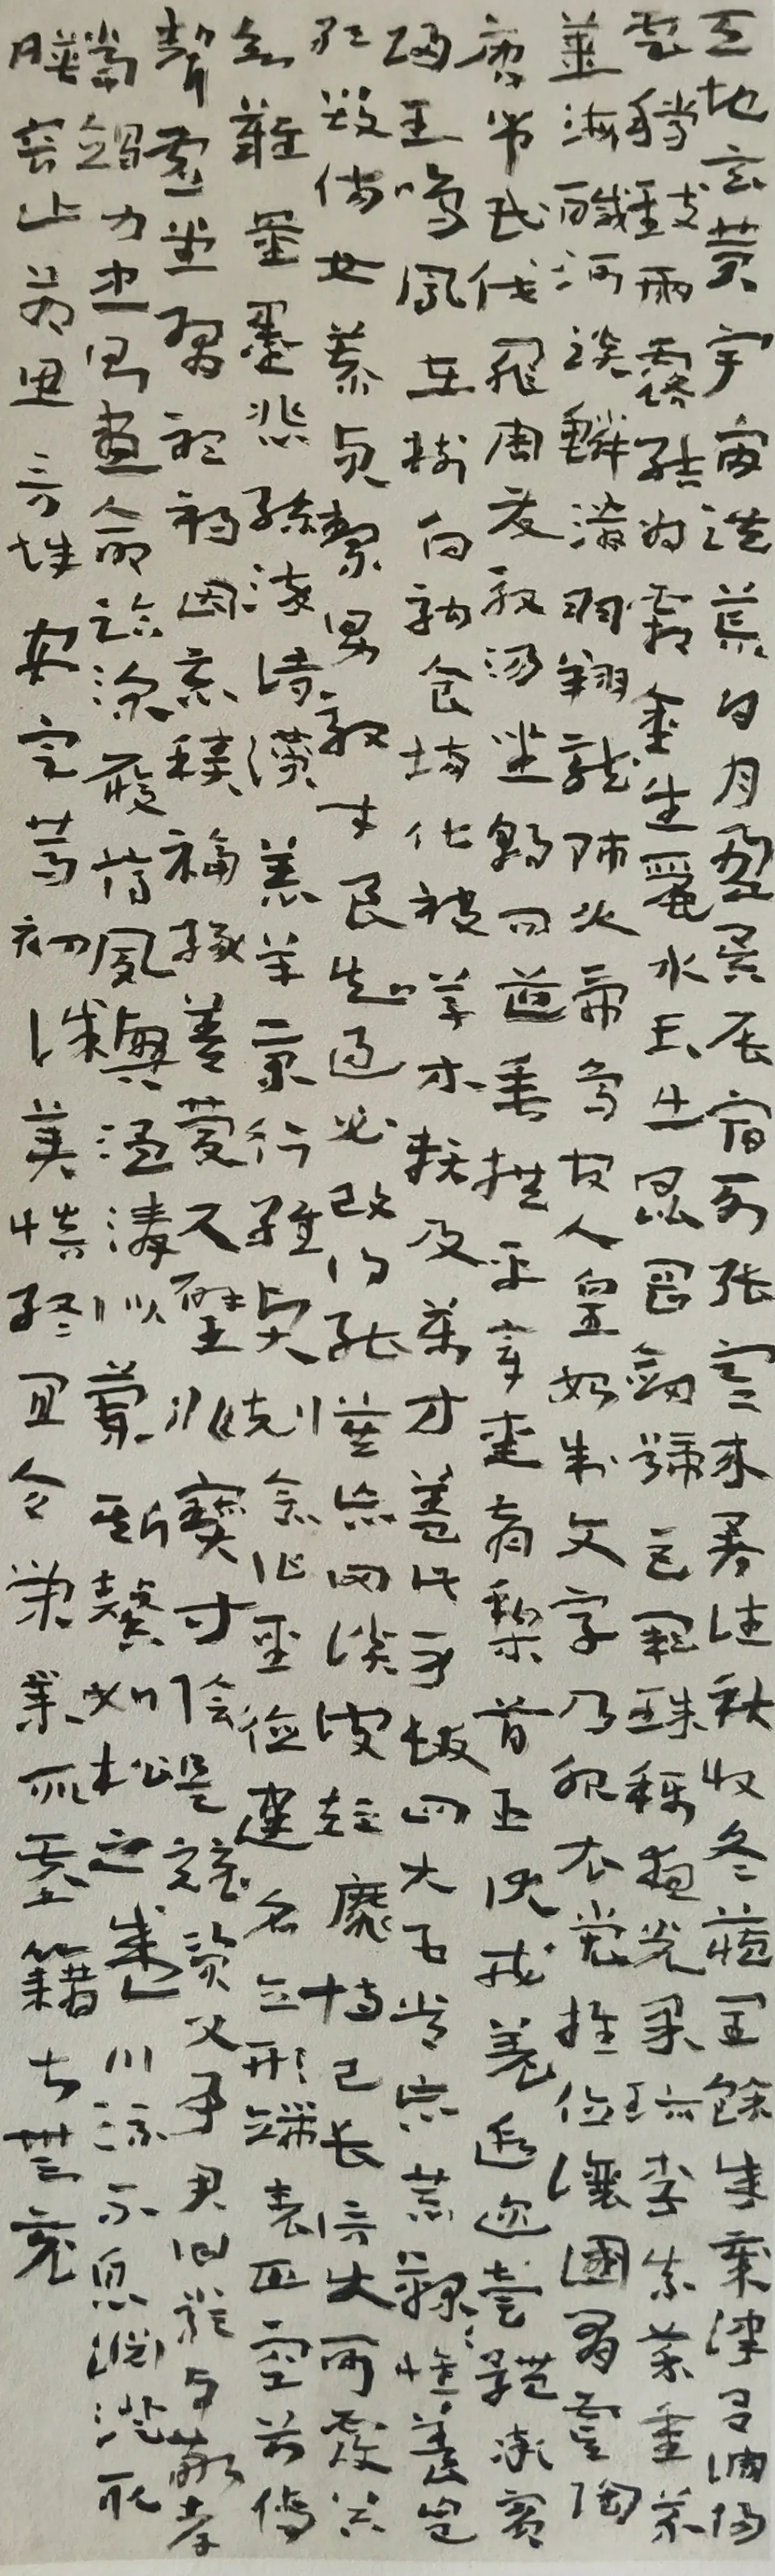 天地玄黄宇宙洪荒日月盈昃辰宿列張寒来暑往秋收冬藏閏餘成歲律吕調陽
雲騰致雨露結為霜金生麗水玉出崑岡劍號巨闕珠稱夜光果珍李柰菜重芥
薑海鹹河淡鱗潛羽翔龍師火帝鳥官人皇始制文字乃服衣裳推位讓國有虞陶
唐弔民伐罪周發殷湯坐朝問道垂拱平章愛育黎首臣伏戎羌遐邇壹體率賓
歸王鳴鳳在樹白駒食場化被草木賴及萬方蓋此身髮四大五常恭鞠惟養豈
敢毀傷女慕貞絜男效才良知過必改得能莫忘罔談彼短靡恃己長信使可覆器
欲難量墨悲絲染詩讚羔羊景行維賢克念作聖德建名立形端表正空谷傳
聲虚堂習聽禍因惡積福緣善慶尺璧非寶寸陰是競資父事君曰嚴與敬孝
當竭力忠則盡命臨深履薄夙興温凊似蘭斯馨如松之盛川流不息淵澄取
映容止若思言辭安定篤初誠美慎終宜令榮業所基籍甚無竟